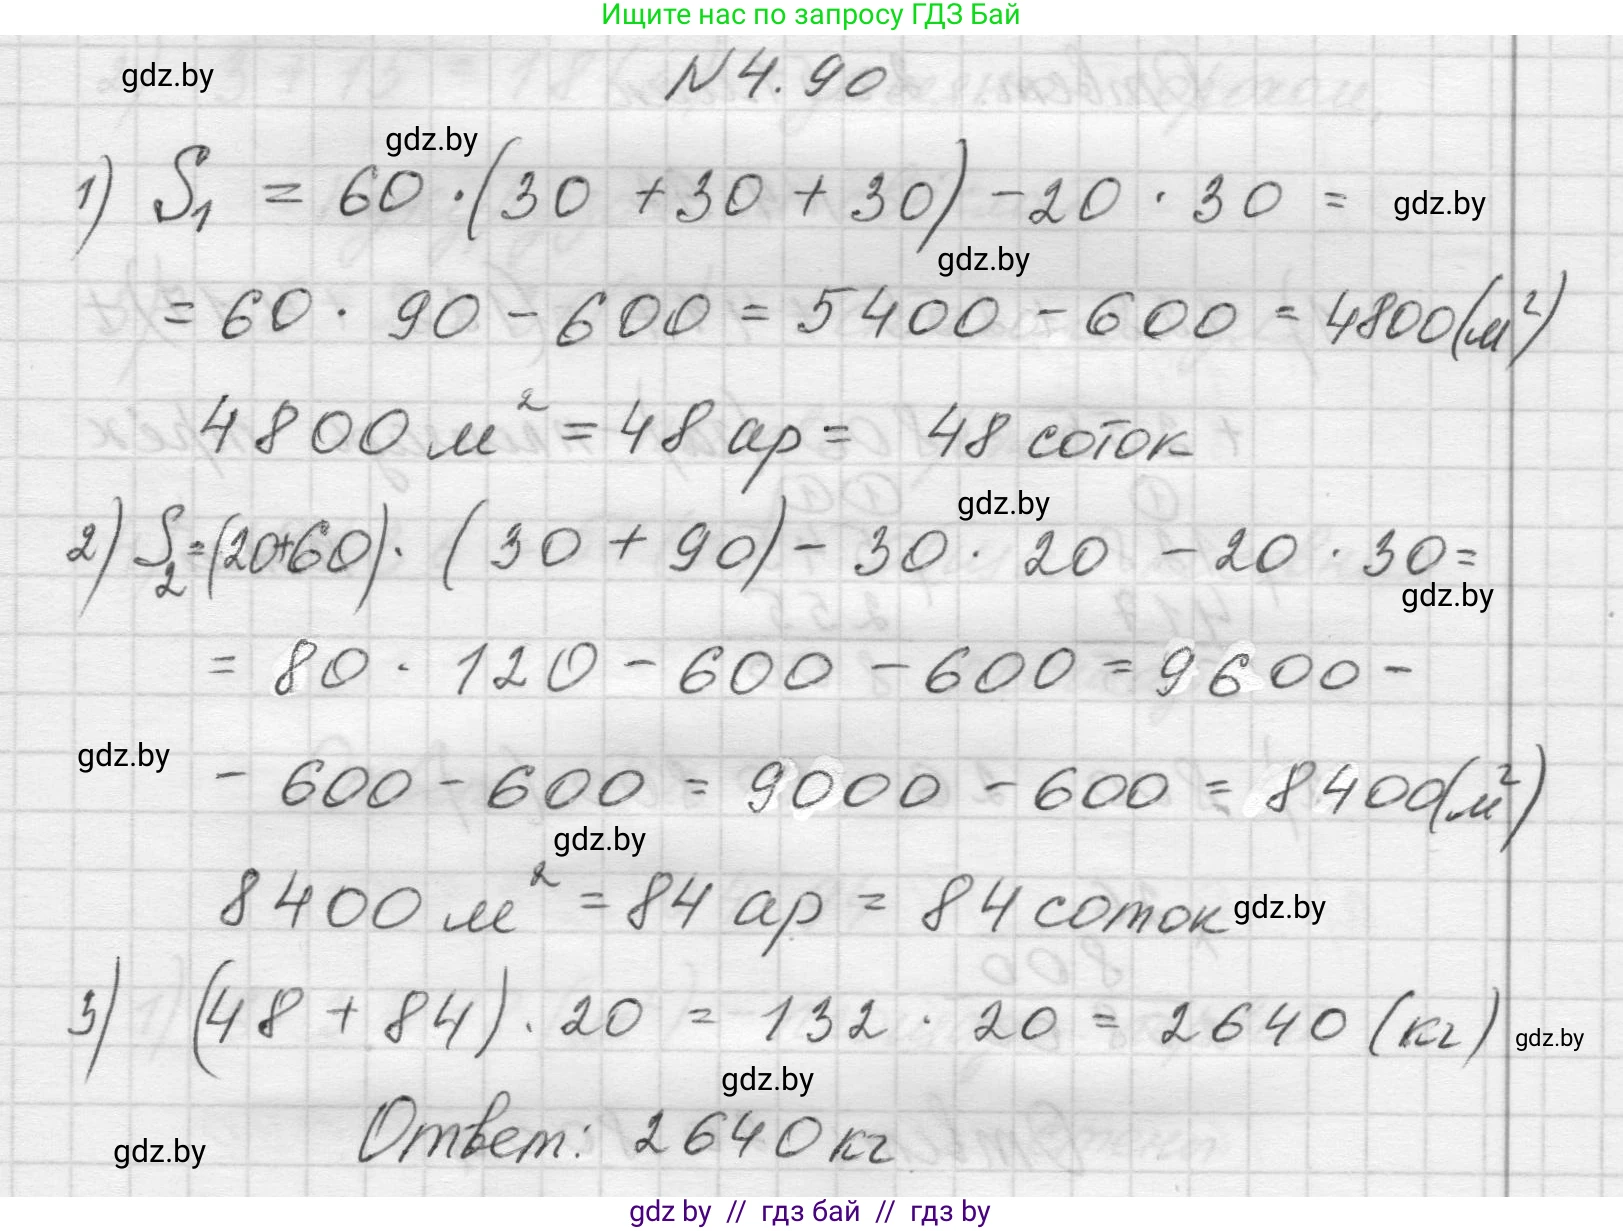 Ищите нас по запросу ГДЗ Бай
gdz.by
N 4.90
gdz.by
1) S₁ = 60 · (30 + 30 + 30) - 20 · 30 =
gdz.by
gdz.by
= 60 · 90 - 600 = 5400 - 600 = 4800 (м²)
4800 м² = 48 ар = 48 соток
gdz.by
2) S₂ = (20+60) · (30 + 90) - 30 · 20 - 20 · 30 =
gdz.by
= 80 · 120 - 600 - 600 = 9600 -
gdz.by
- 600 - 600 = 9000 - 600 = 8400 (м²)
gdz.by
8400 м² = 84 ар = 84 соток
gdz.by
3) (48 + 84) · 20 = 132 · 20 = 2640 (кг)
gdz.by
gdz.by
Ответ: 2640 кг
gdz.by
gdz by // гдз бай // гдз by